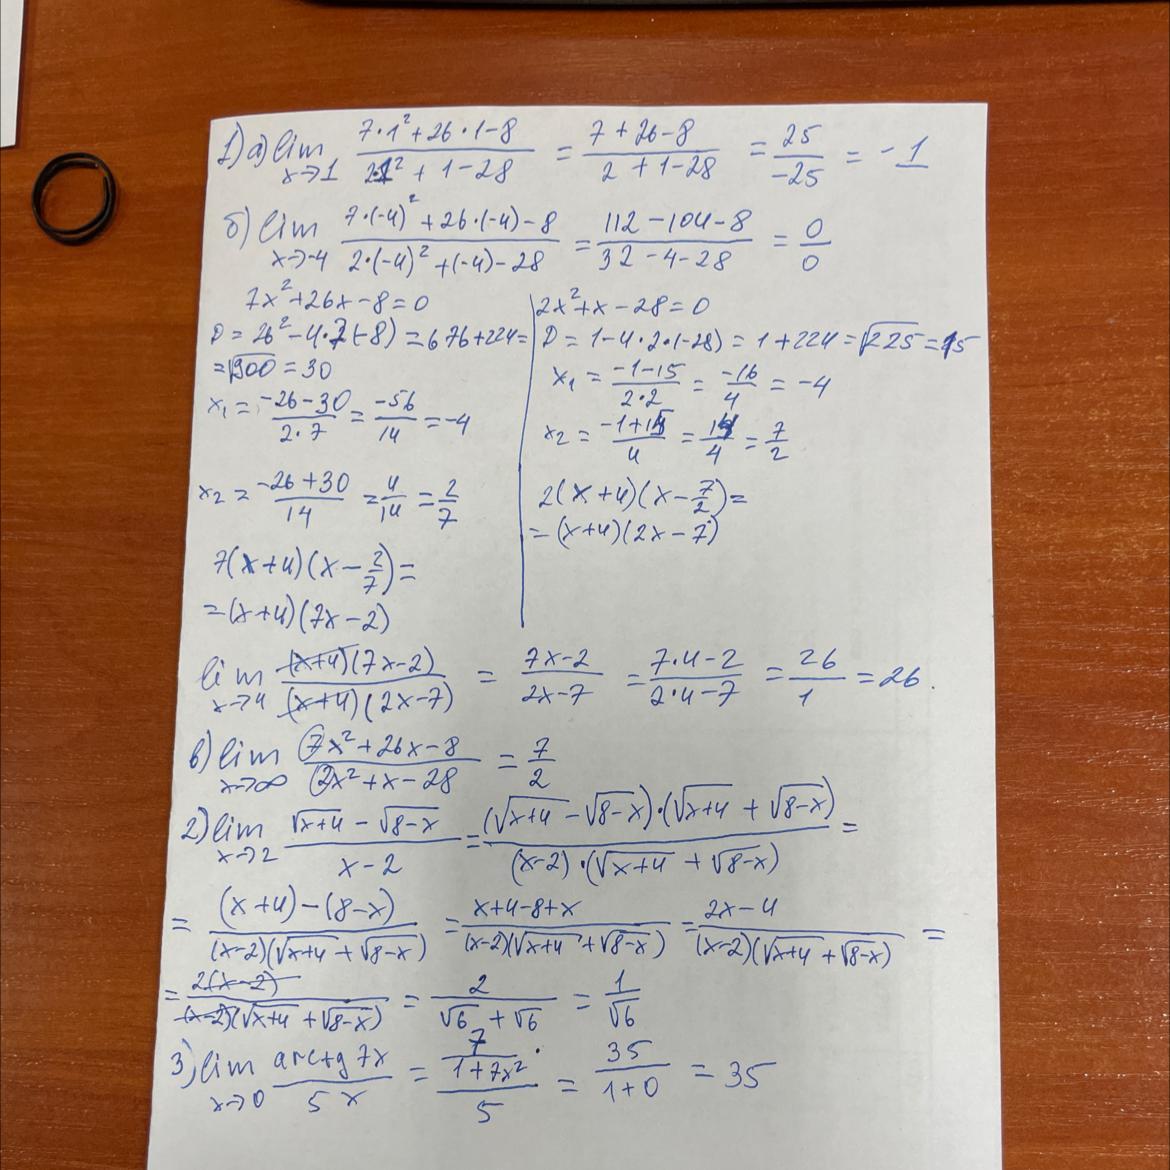 1) а) lim x→1 (7·1²+26·1−8)/(2·1²+1−28) = (7+26−8)/(2+1−28) = 25/−25 = −1
б) lim x→−4 (7·(−4)²+26·(−4)−8)/(2·(−4)²+(−4)−28) = (112−104−8)/(32−4−28) = 0/0
7x²+26x−8=0
D=26²−4·7(−8)=676+224=
=√900=30
x₁=(−26−30)/(2·7)=−56/14=−4
x₂=(−26+30)/14=4/14=2/7
7(x+4)(x−2/7)=
=(x+4)(7x−2)
2x²+x−28=0
D=1−4·2·(−28)=1+224=√225=15
x₁=(−1−15)/(2·2)=−16/4=−4
x₂=(−1+15)/4=14/4=7/2
2(x+4)(x−7/2)=
=(x+4)(2x−7)
lim x→4 (x+4)(7x−2)/(x+4)(2x−7) = (7x−2)/(2x−7) = (7·4−2)/(2·4−7) = 26/1 = 26.
в) lim x→∞ (7x²+26x−8)/(2x²+x−28) = 7/2
2) lim x→2 (√x+4 − √8−x)/(x−2) = (√x+4 − √8−x)·(√x+4 + √8−x)/(x−2)·(√x+4 + √8−x) =
= ((x+4)−(8−x))/(x−2)(√x+4 + √8−x) = (x+4−8+x)/(x−2)(√x+4 + √8−x) = (2x−4)/(x−2)(√x+4 + √8−x) =
= 2(x−2)/(x−2)(√x+4 + √8−x) = 2/(√6 + √6) = 1/√6
3) lim x→0 arctg 7x/5x = (7/(1+7x²))/5 = 35/(1+0) = 35